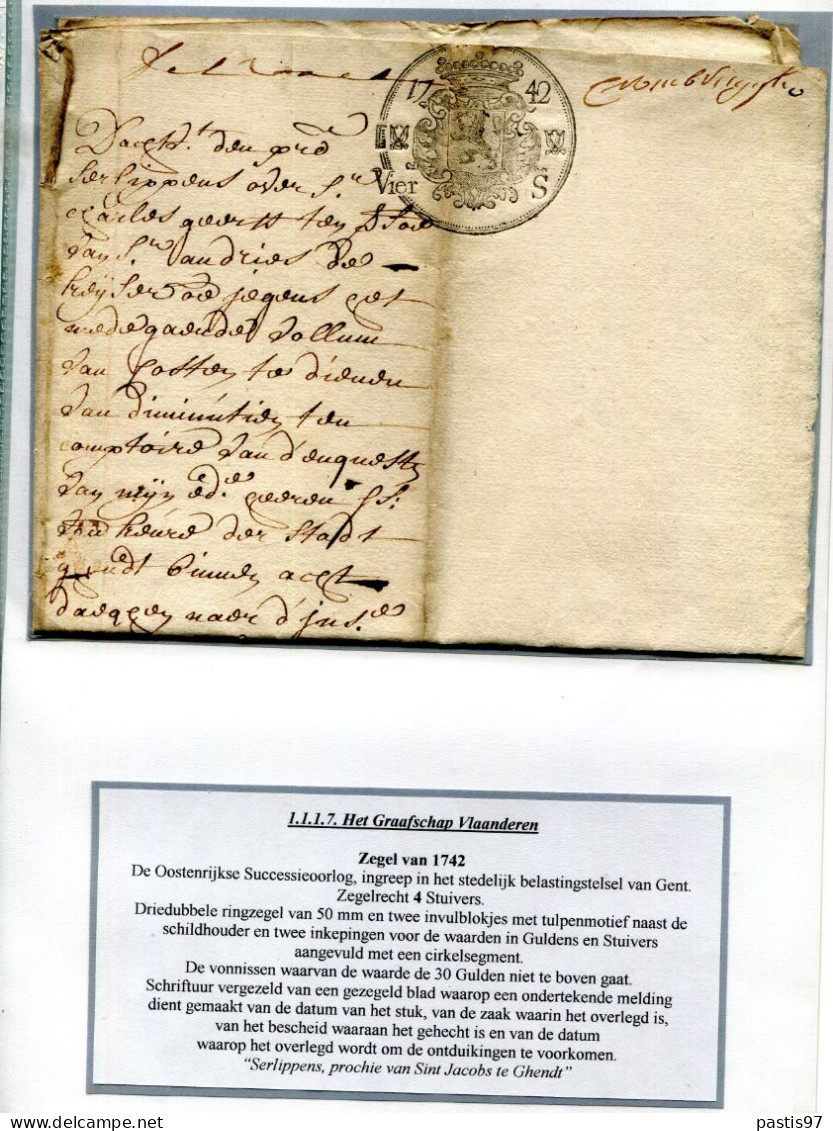 17 42
Vier S
Dacht den pro
Serlippens over Sr
Charles geertt ten
van Sr andries de
keijser jegens het
mede gaende vollum
van Costen te dienen
van diminutien ten
comptoire van d'enqueste
van mijn ede heeren
van keure der stadt
ghendt binnen acht
daeghen naer d'inse
1.1.1.7. Het Graafschap Vlaanderen
Zegel van 1742
De Oostenrijkse Successieoorlog, ingreep in het stedelijk belastingstelsel van Gent.
Zegelrecht 4 Stuivers.
Driedubbele ringzegel van 50 mm en twee invulblokjes met tulpenmotief naast de
schildhouder en twee inkepingen voor de waarden in Guldens en Stuivers
aangevuld met een cirkelsegment.
De vonnissen waarvan de waarde de 30 Gulden niet te boven gaat.
Schriftuur vergezeld van een gezegeld blad waarop een ondertekende melding
dient gemaakt van de datum van het stuk, van de zaak waarin het overlegd is,
van het bescheid waaraan het gehecht is en van de datum
waarop het overlegd wordt om de ontduikingen te voorkomen.
“Serlippens, prochie van Sint Jacobs te Ghendt”
pastis97